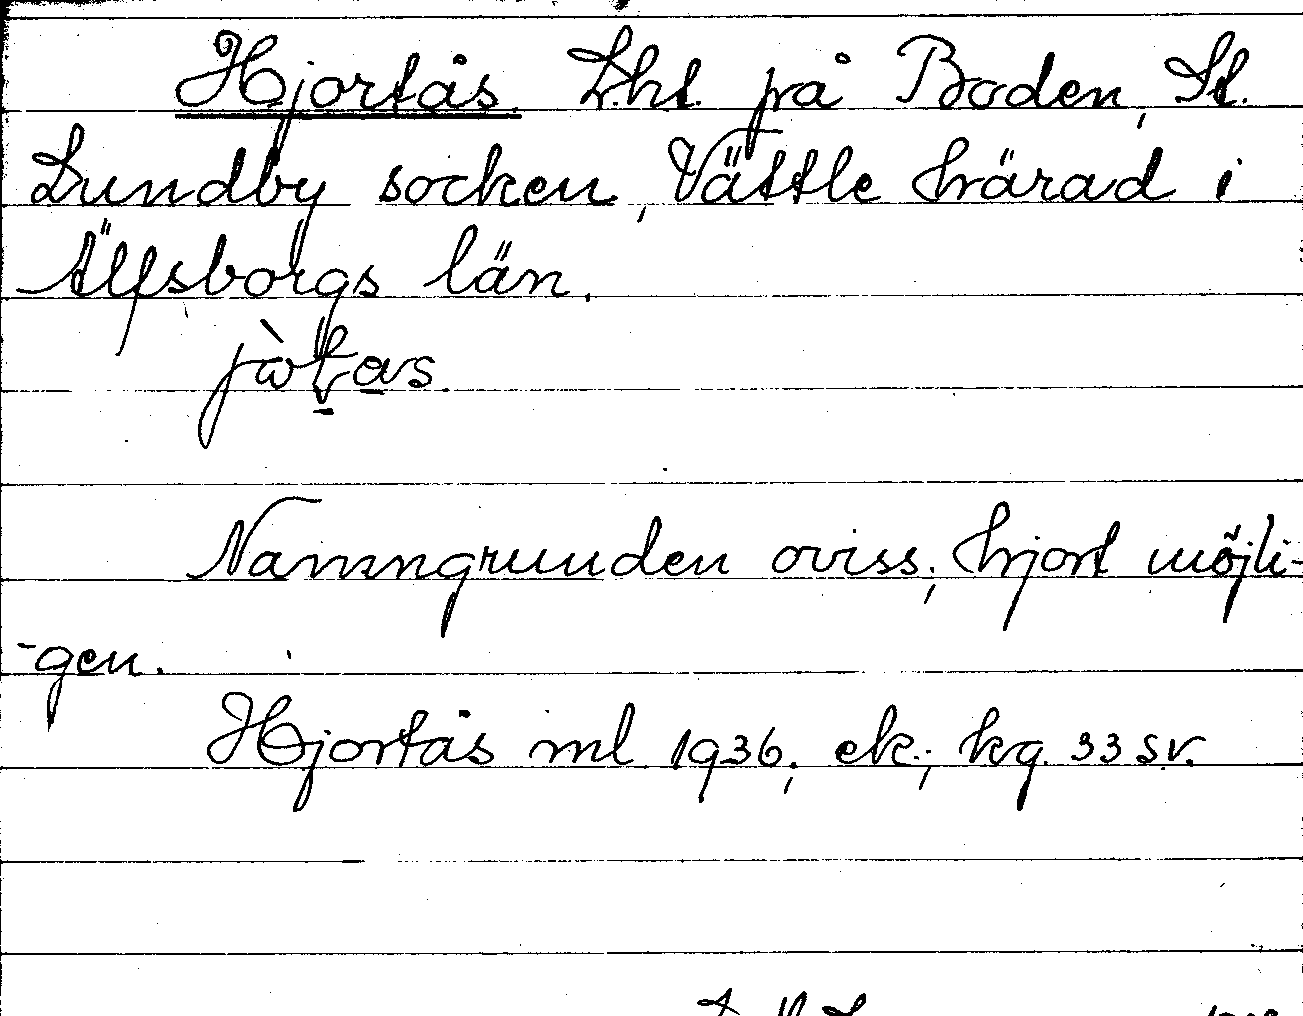 Hjortås. Lht. på Boden, St.
Lundby socken, Vättle härad i
Älfsborgs län.
Namngrunden oviss; hjort möjli-
-gen.
Hjortås ml 1936; ek.; kg. 33 sv.